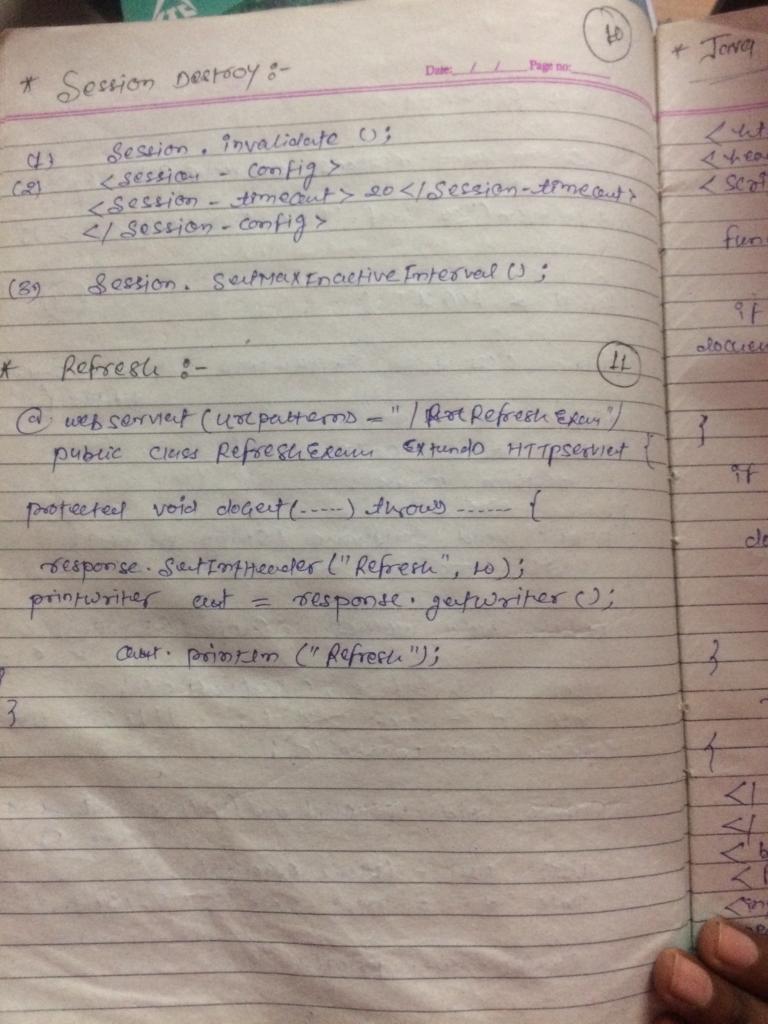 10
* Session Destroy :-
Date: / / Page no:
(1) Session . invalidate ();
(2) <session - config>
<Session - timeout> 20 </Session-timeout>
</ Session - config>
(3) Session. SetMaxInactiveInterval () ;
11
* Refresh :-
@ webservlet (urlpatterns = "/ RefreshExam")
public class RefreshExam Extends HTTpservlet {
protected void doGet(-----) throws ------ {
response. SetIntHeader ("Refresh", 10);
printwriter out = response. getwriter ();
out. println ("Refresh");
}
}
* Java
<
<
<
fun
if
docum
}
if
do
}
{
</
</
< b
<
<in